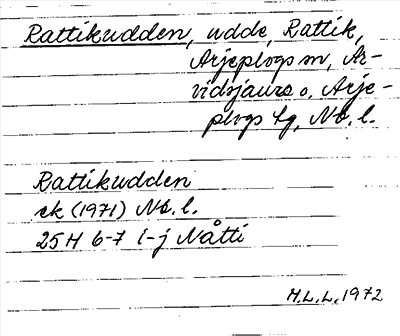 Rattikudden, udde, Rattik,
Arjeplogs sn, Ar-
vidsjaurs o. Arje-
plogs tg, Nb. l.
Rattikudden
ek (1971) Nb. l.
25H 6-7 i-j Nåtti
H.L.L. 1972